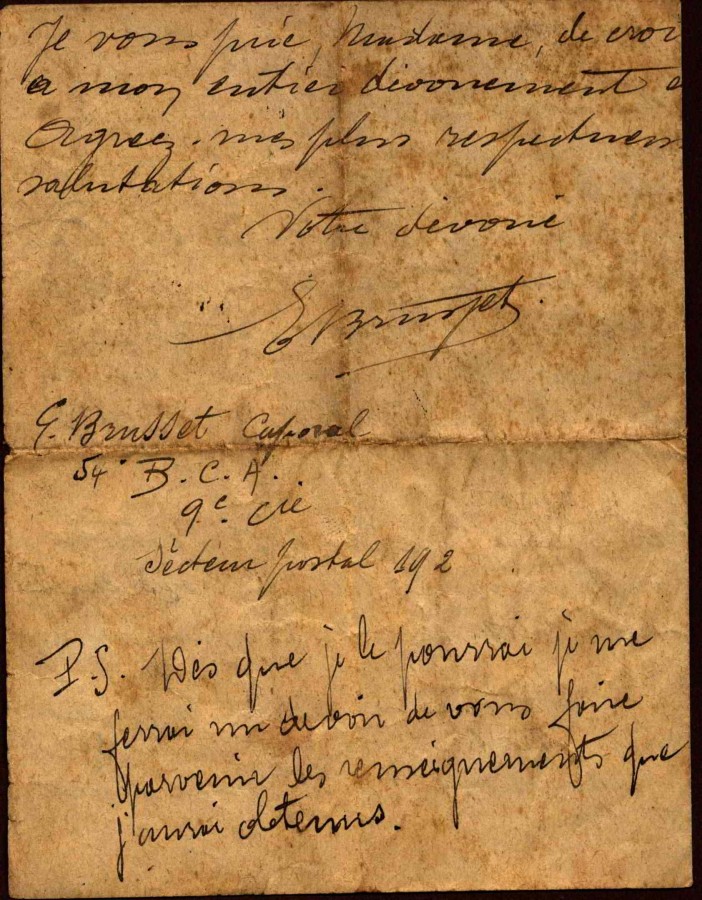 Je vous prie, Madame, de croi
a mon entier dévouement e
Agréez mes plus respectueu
salutations.
Votre dévoué
E Brusset.
E. Brusset Caporal
54e B.C.A.
9e Cie
Secteur postal 192
P.S. Dès que je le pourrai je me
ferrai un devoir de vous faire
parvenir les renseignements que
j'aurai obtenus.